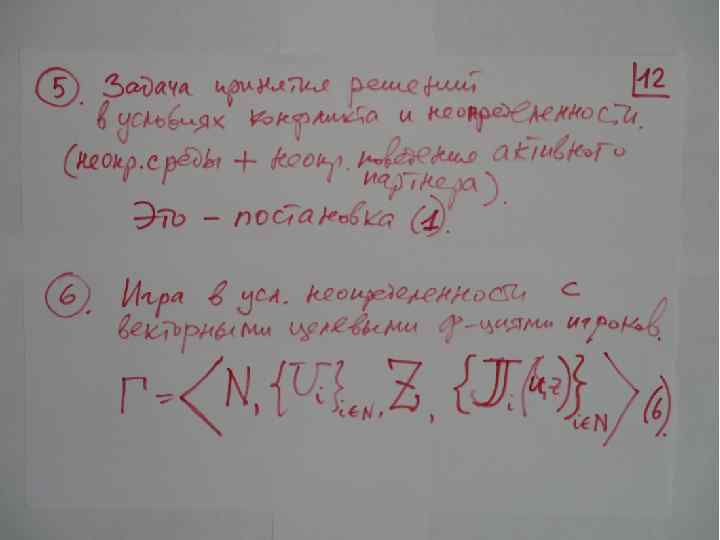 12
5. Задача принятия решений
в условиях конфликта и неопределенности.
(неопр. среды + неопр. поведения активного
партнера).
Это – постановка (1).
6. Игра в усл. неопределенности с
векторными целевыми ф-циями игроков.
Γ = ⟨N, {U_i}_{i∈N}, Z, {J_i(u,z)}_{i∈N}⟩ (6)